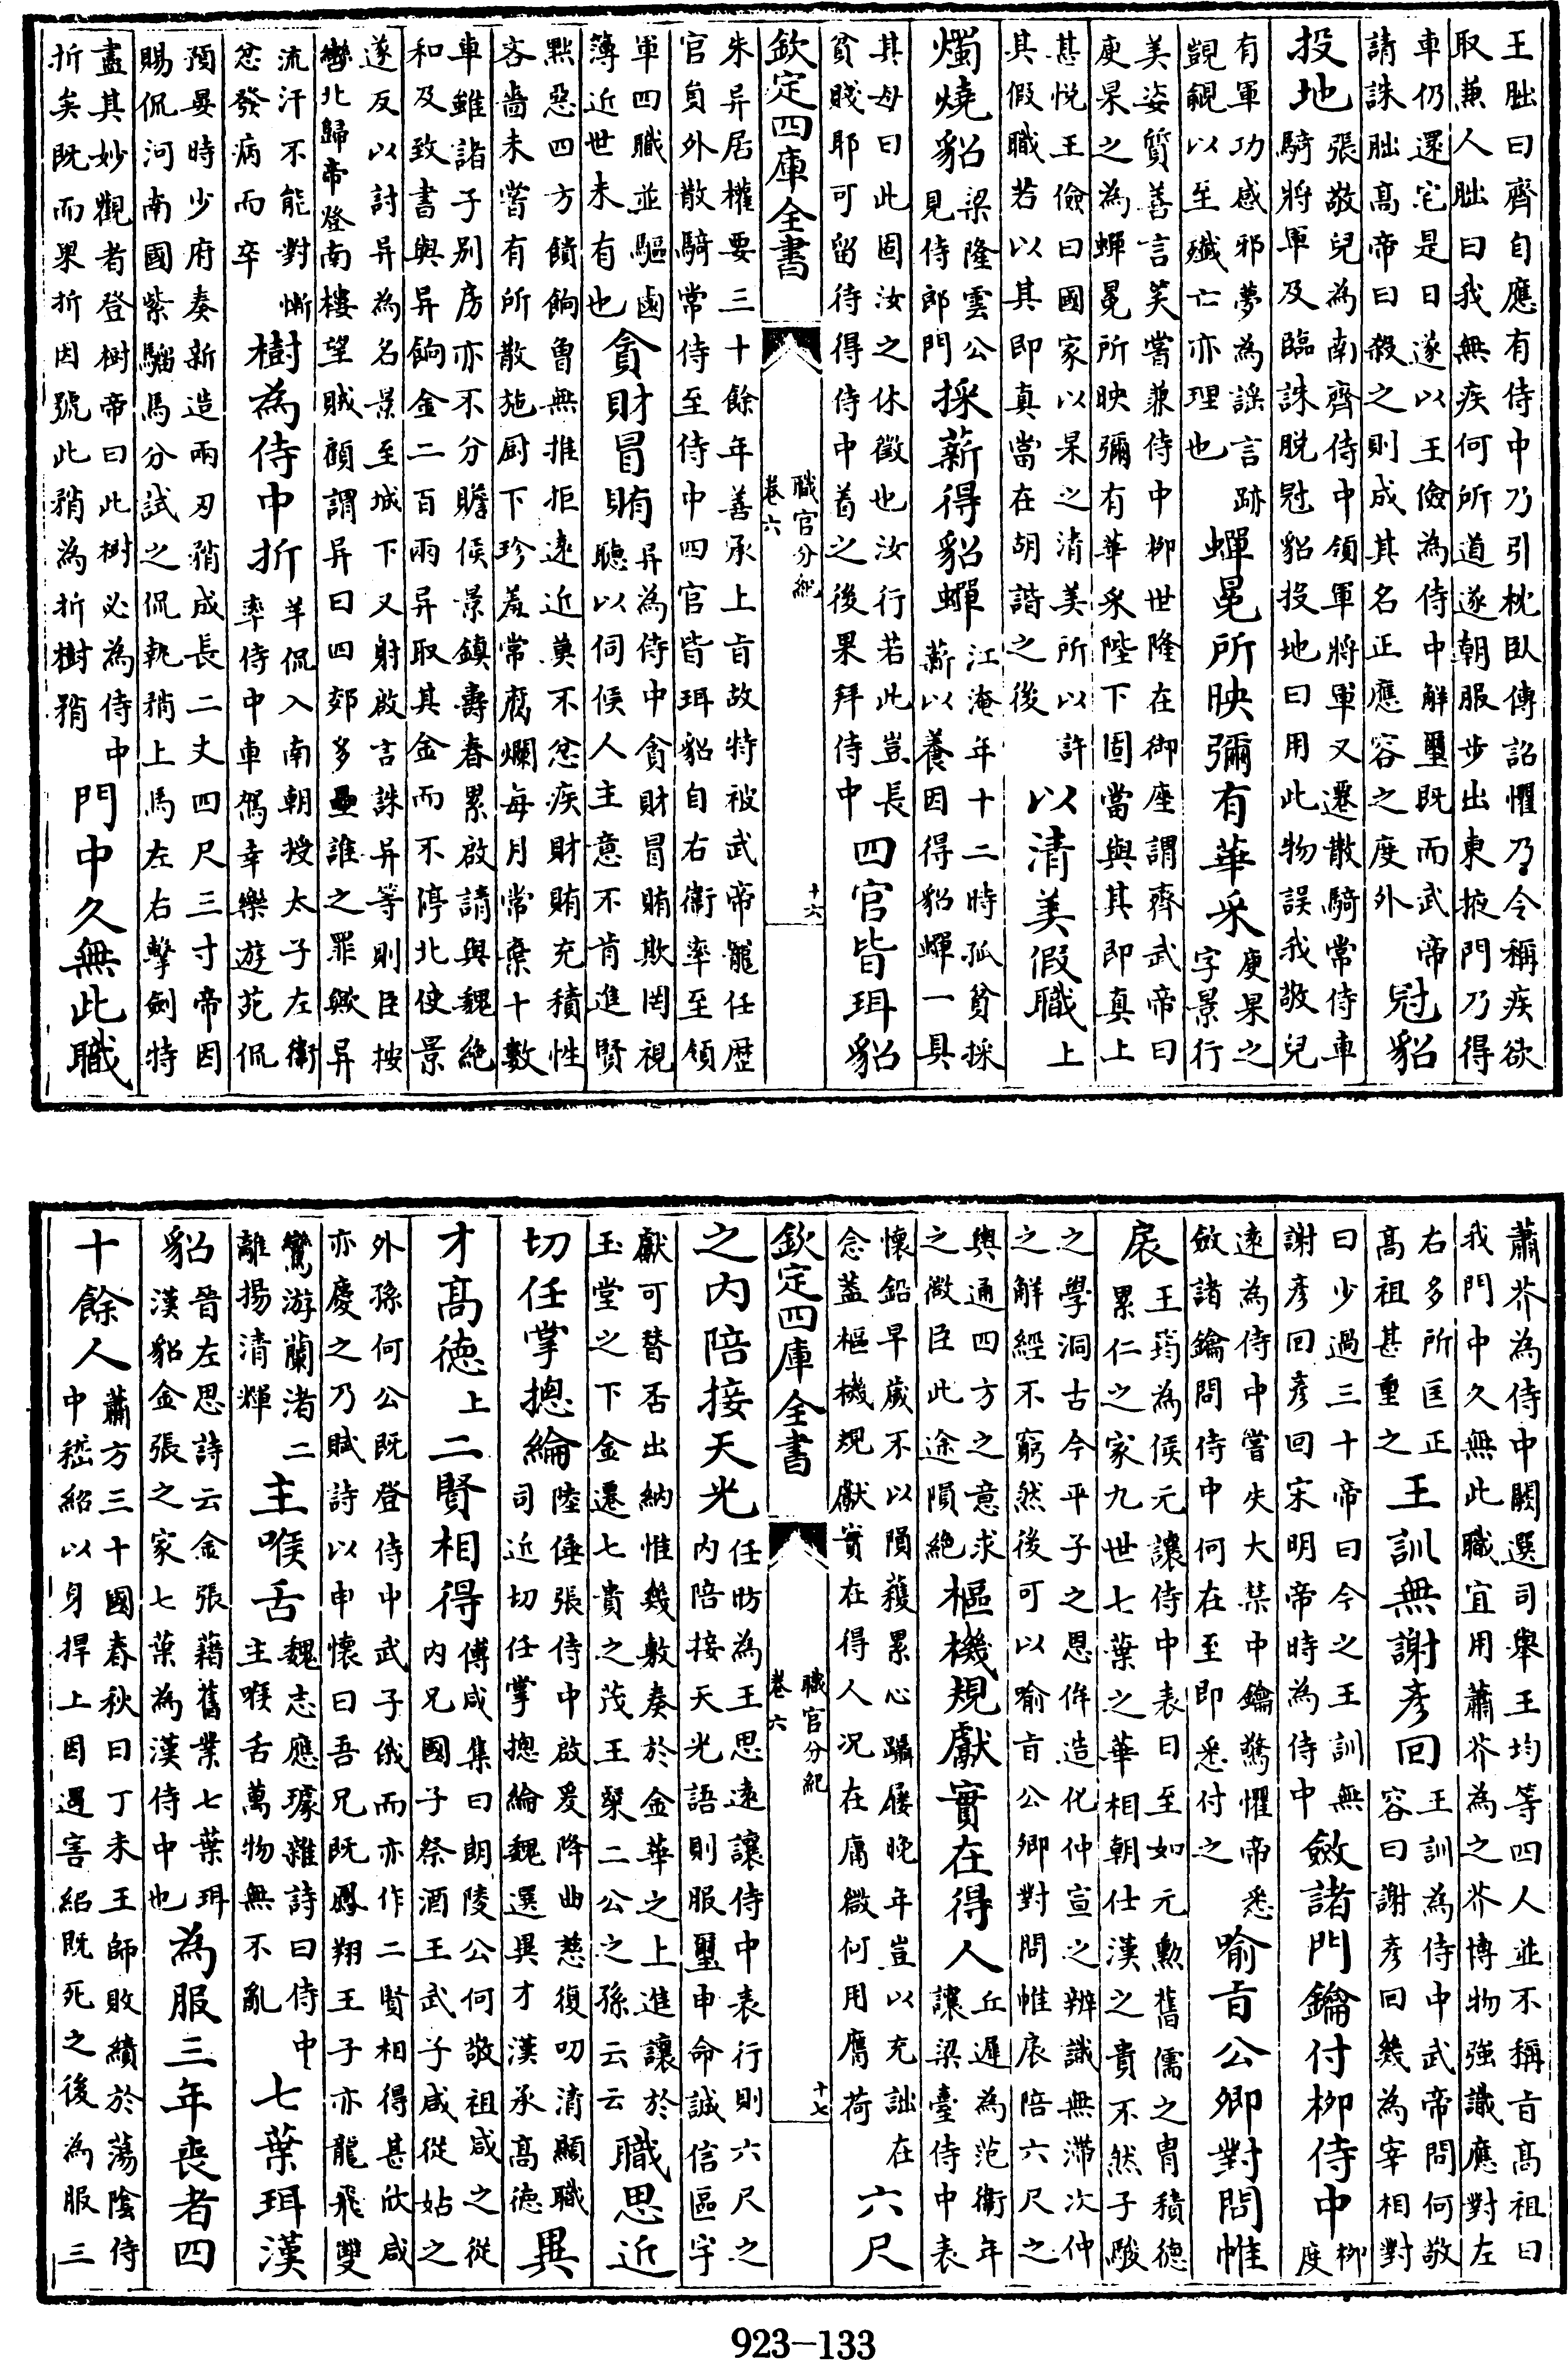 王朏曰齊自應有侍中乃引枕臥傳詔懼乃令稱疾欲
取兼人朏曰我無疾何所道遂朝服步出東掖門乃得
車仍還宅是日遂以王儉為侍中解璽既而武帝
請誅朏高帝曰殺之則成其名正應容之度外
冠貂
投地
張敬兒為南齊侍中領軍將軍又遷散騎常侍車
騎將軍及臨誅脱冠貂投地曰用此物誤我敬兒
有軍功感邪夢為謡言跡
覬覦以至殲亡亦理也
蟬冕所映彌有華采
庾杲之
字景行
美姿質善言笑嘗兼侍中柳世隆在御座謂齊武帝曰
庾杲之為蟬冕所映彌有華采陛下固當與其即真上
甚悦王儉曰國家以杲之清美所以許
其假職若以其即真當在胡諧之後
以清美假職
上
燭燒貂
梁隆雲公
見侍郎門
採薪得貂蟬
江淹年十二時孤貧採
薪以養因得貂蟬一具
其母曰此固汝之休徵也汝行若此豈長
貧賤耶可留待得侍中着之後果拜侍中
四官皆珥貂
欽定四庫全書
職官分紀
卷六
十六
朱异居權要三十餘年善承上㫖故特被武帝寵任歴
官員外散騎常侍至侍中四官皆珥貂自右衛率至領
軍四職並驅鹵
薄近世未有也
貪財冒賄
异為侍中貪財冒賄欺罔視
聽以伺候人主意不肯進賢
黜惡四方饋餉曾無推拒遠近莫不忿疾財賄充積性
吝嗇未嘗有所散施厨下珍羞常腐爛每月常棄十數
車雖諸子别房亦不分贍侯景鎮壽春累啟請與魏絶
和及致書與异餉金二百兩异取其金而不停北使景
遂反以討异為名景至城下又射啟言誅异等則臣按
轡北歸帝登南樓望賊顧謂异曰四郊多壘誰之罪歟异
流汗不能對慚
忿發病而卒
樹為侍中折
羊侃入南朝授太子左衛
率侍中車駕幸樂遊苑侃
預宴時少府奏新造兩刃矟成長二丈四尺三寸帝因
賜侃河南國紫騮馬分試之侃執矟上馬左右擊劍特
盡其妙觀者登樹帝曰此樹必為侍中
折矣既而果折因號此矟為折樹矟
門中久無此職
蕭介為侍中闕選司舉王均等四人並不稱㫖高祖曰
我門中久無此職宜用蕭介為之介博物強識應對左
右多所匡正
高祖甚重之
王訓無謝彦回
王訓為侍中武帝問何敬
容曰謝彦回幾為宰相對
曰少過三十帝曰今之王訓無
謝彦回彦回宋明帝時為侍中
斂諸門鑰付柳侍中
柳
度
遠為侍中嘗失大禁中鑰驚懼帝悉
斂諸鑰問侍中何在至即悉付之
喻㫖公卿對問帷
扆
王筠為侯元讓侍中表曰至如元勲舊儒之胄積德
累仁之家九世七葉之華相朝仕漢之貴不然子駿
之學洞古今平子之思侔造化仲宣之辨識無滯次仲
之解經不窮然後可以喻㫖公卿對問帷扆陪六尺之
輿通四方之意求
之微臣此途隕絶
樞機規獻實在得人
丘遲為范衛年
讓梁臺侍中表
懷鉛早嵗不以隕穫累心躡屩晚年豈以充詘在
念蓋樞機規獻實在得人况在庸微何用膺荷
六尺
欽定四庫全書
職官分紀
卷六
十七
之内陪接天光
任昉為王思遠讓侍中表行則六尺之
内陪接天光語則服璽申命誠信區宇
獻可替否出納惟幾敷奏於金華之上進讓於
玉堂之下金遷七貴之茂王粲二公之孫云云
職思近
切任掌摠綸
陸倕張侍中啟爰降曲慈復叨清顯職
司近切任掌摠綸魏選異才漢承高德
異
才高德
上
二賢相得
傅咸集曰朗陵公何敬祖咸之從
内兄國子祭酒王武子咸從姑之
外孫何公既登侍中武子俄而亦作二賢相得甚欣咸
亦慶之乃賦詩以申懷曰吾兄既鳳翔王子亦龍飛雙
鸞游蘭渚二
離揚清輝
主喉舌
魏志應璩雜詩曰侍中
主喉舌萬物無不亂
七葉珥漢
貂
晉左思詩云金張藉舊業七葉珥
漢貂金張之家七葉為漢侍中也
為服三年喪者四
十餘人
蕭方三十國春秋曰丁未王師敗績於蕩陰侍
中嵇紹以身捍上因遇害紹既死之後為服三
923-133